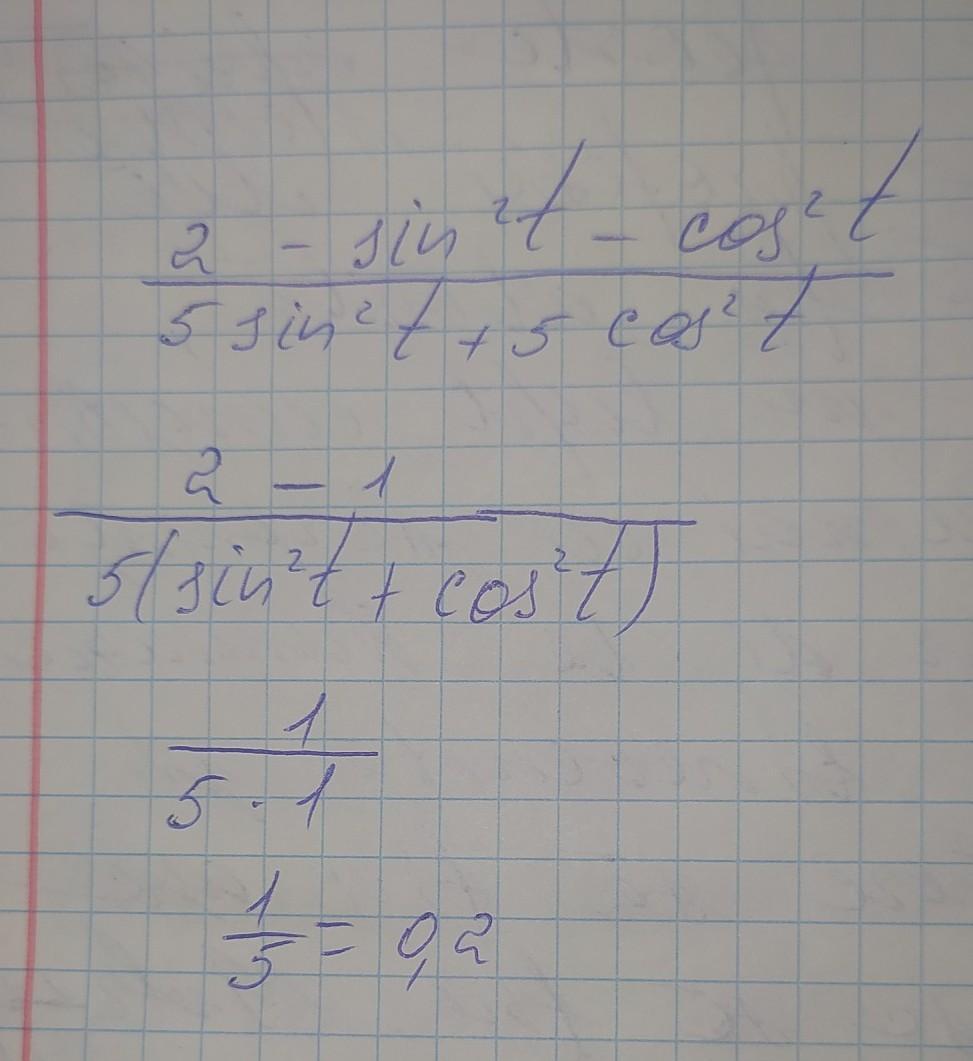 2 - sin²t - cos²t
5 sin²t + 5 cos²t
2 - 1
5(sin²t + cos²t)
1
5 · 1
1
5 = 0,2